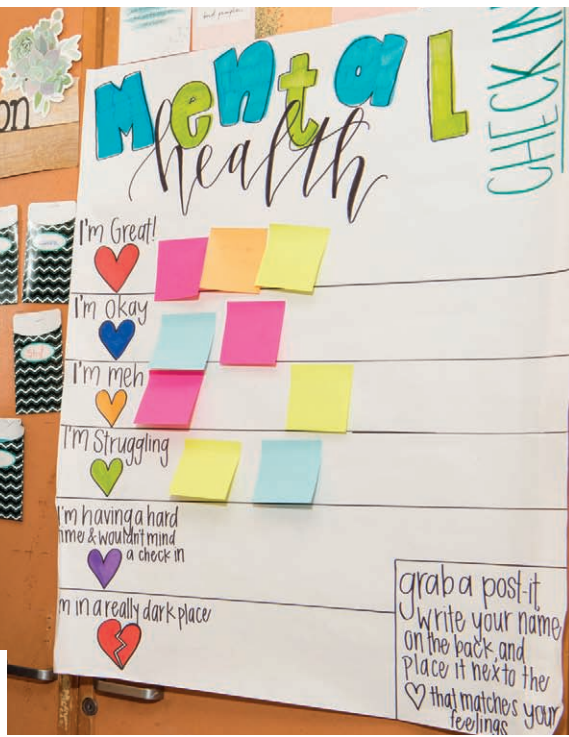 Mental
health
CHECK IN
I'm Great!
I'm okay
I'm meh
I'm Struggling
I'm having a hard
time & wouldn't mind
a check in
m in a really dark place
grab a post-it
write your name
on the back, and
place it next to the
♡ that matches your
feelings
on